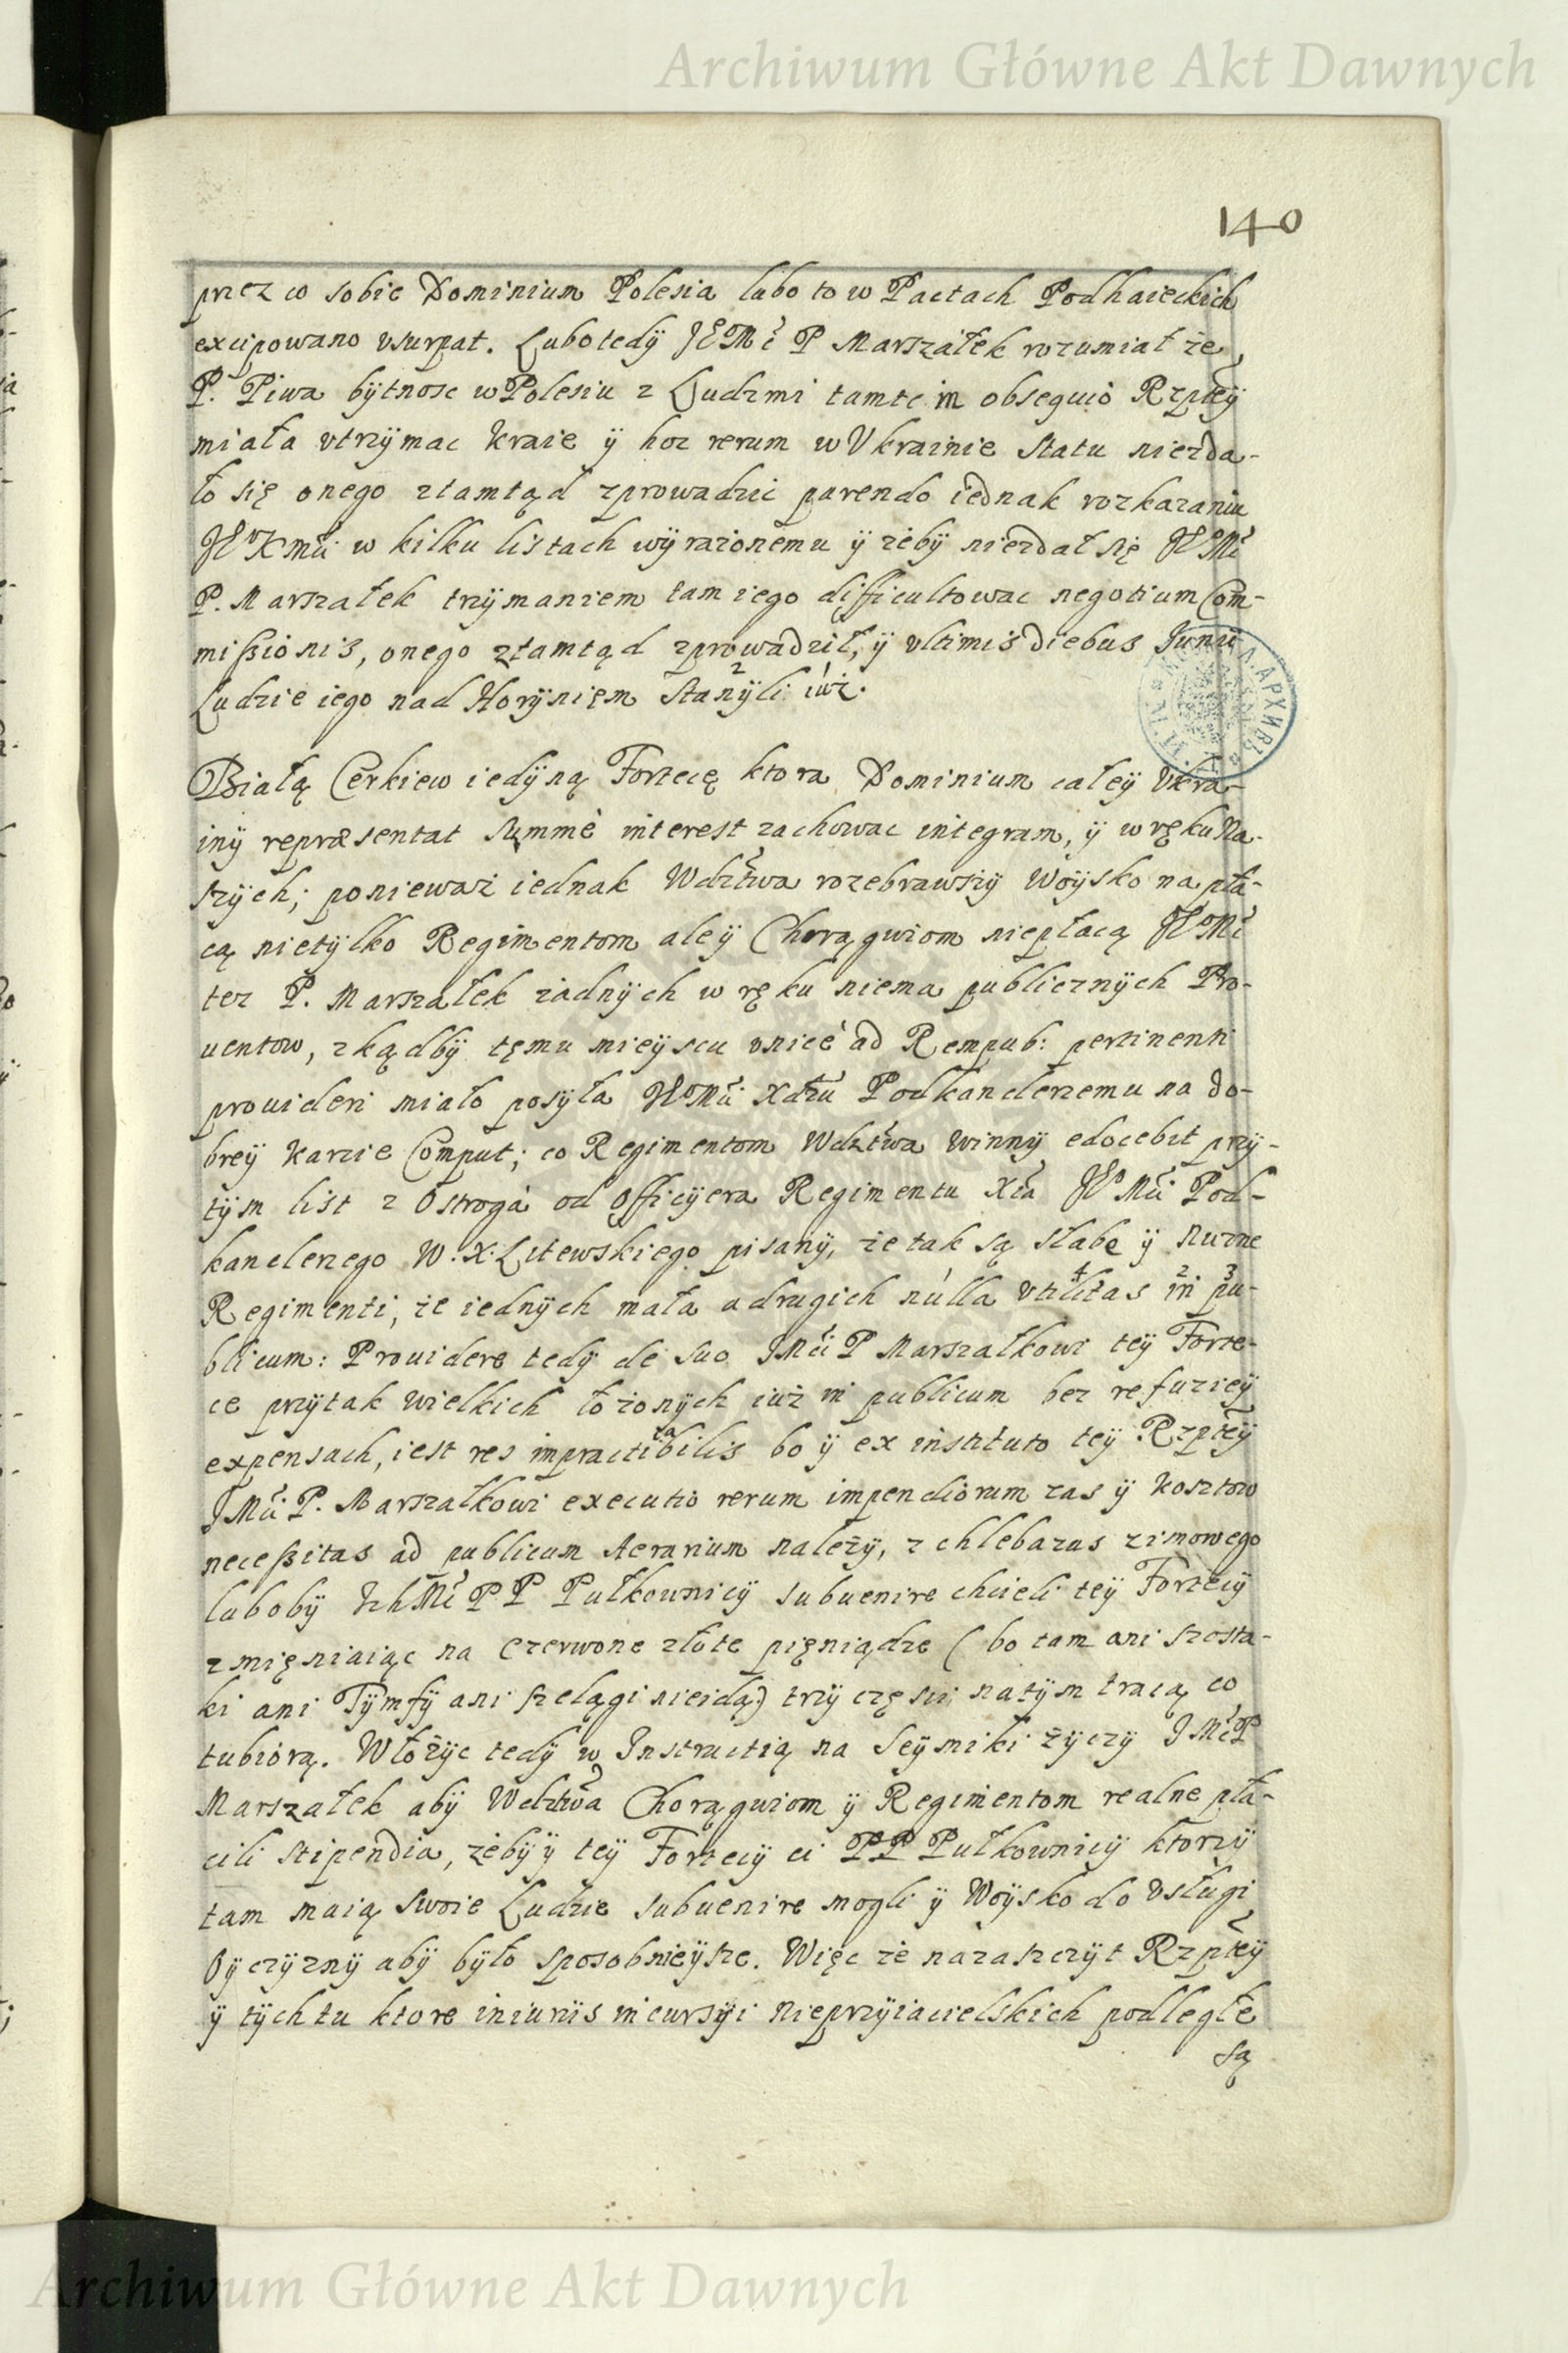 Archiwum Główne Akt Dawnych
140
przez co sobie Dominium Polesia lubo to w Pactach Podhaieckich
excipowano vsurpat. Lubo tedÿ JEMć P Marszałek rozumiał że,
P. Piwa bÿtnosc w Polesiu z Ludzmi tamte in obsequio Rzpteÿ
miała vtrzÿmac kraie ÿ hoc rerum w Vkrainie statu niezda-
ło się onego ztamtąd zprowadzic parendo iednak rozkazaniu
JE°KMći w kilku listach wÿrażonemu ÿ żebÿ niezdał się JE°Mć
P. Marszałek trzÿmaniem tam iego difficultowac negotium Com-
mißionis, onego ztamtąd zprowadził, ÿ vltimis diebus Junii
Ludzie iego nad Horÿnięm stanÿli iuż.
Białą Cerkiew iedÿną Fortecę ktora Dominium całeÿ Vkra-
inÿ repræsentat summè interest zachowac integram, ÿ w ręku Na-
szÿch; ponieważ iednak Wdztwa rozebrawszÿ Woÿsko na pła-
cą nietÿlko Regimentom ale ÿ Chorągwiom niepłacą JE°Mć
tez P. Marszałek żadnÿch w ręku niema publicznÿch Pro-
uentow, zkądbÿ tęmu mieÿscu vnicè ad Rempub: pertinenti
prouideri miało posÿła JE°Mći Xdzu Podkanclerzemu na do-
breÿ karcie Comput; co Regimentom Wdztwa winnÿ edocebit przÿ-
tÿm list z Ostroga od Officÿera Regimentu Xia JE°Mći Pod-
kanclerzego W. X. Litewskiego pisanÿ, że tak są słabe ÿ nuzne
Regimenti, że iednÿch mała a drugich nulla vtilitas in pu-
blicum: Prouidere tedÿ de suo JMći P Marszałkowi teÿ Forte-
ce przÿ tak wielkich łożonÿch iuż in publicum bez refuzieÿ
expensach, iest res impracticabilis bo ÿ ex instituto teÿ Rzpteÿ
JMći P. Marszałkowi executio rerum impendiorum zas ÿ kosztow
neceßitas ad publicum Aerarium należÿ, z chleba zas zimowego
lubobÿ IchMć PP Pułkownicÿ subuenire chcieli teÿ Fortecÿ
zmięniaiąc na czerwone złote pięniądze (bo tam ani szosta-
ki ani Tÿmfÿ ani szelągi nieidą) trzÿ części natÿm tracą co
tu biorą. Włożÿc tedÿ w Instructią na Seÿmiki żÿczÿ JMć P
Marszałek abÿ Wdztwa Chorągwiom ÿ Regimentom realne pła-
cili stipendia, żebÿ ÿ teÿ Fortecÿ ci PP Pułkownicÿ ktorzÿ
tam maią swoie Ludzie subuenire mogli ÿ Woÿsko do Vsługi
Oÿczÿznÿ abÿ bÿło sposobnieÿsze. Więc że nazaszczÿt Rzpteÿ
ÿ tÿch tu ktore iniuriis incursÿi nieprzÿiacielskich podległe
są
Archiwum Główne Akt Dawnych